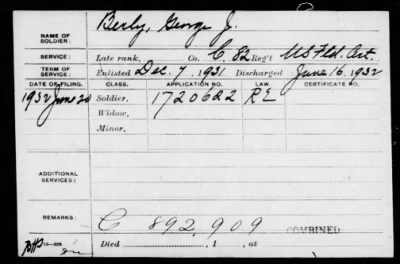 NAME OF SOLDIER: Berly, George J.
SERVICE: Late rank, Co. C 82 Reg't US Fld. Art.
TERM OF SERVICE: Enlisted Dec. 7, 1931. Discharged June 16, 1932
DATE OF FILING. CLASS. APPLICATION NO. LAW. CERTIFICATE NO.
1932 June 20 Soldier, 1720622 RE
Widow,
Minor,
ADDITIONAL SERVICES:
REMARKS: C 892,909 COMBINED
Died , 1 , at